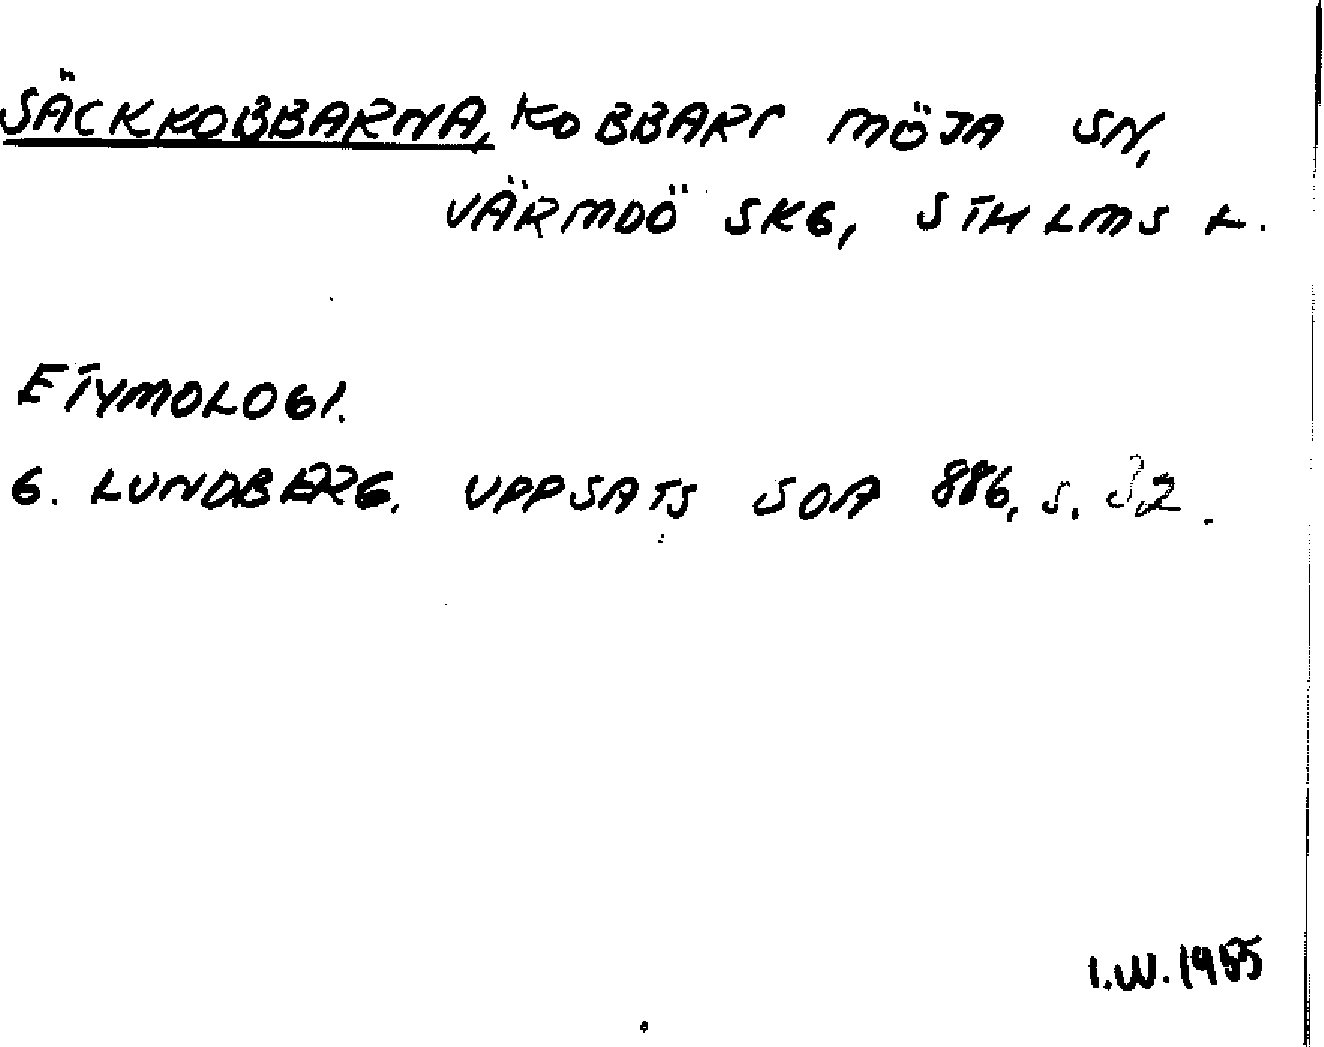 SÄCKKOBBARNA, KOBBAR, MÖJA SN,
VÄRMDÖ SKG, STHLMS L.
ETYMOLOGI.
G. LUNDBERG. UPPSATS SOA 886, S. 32.
I.W. 1955